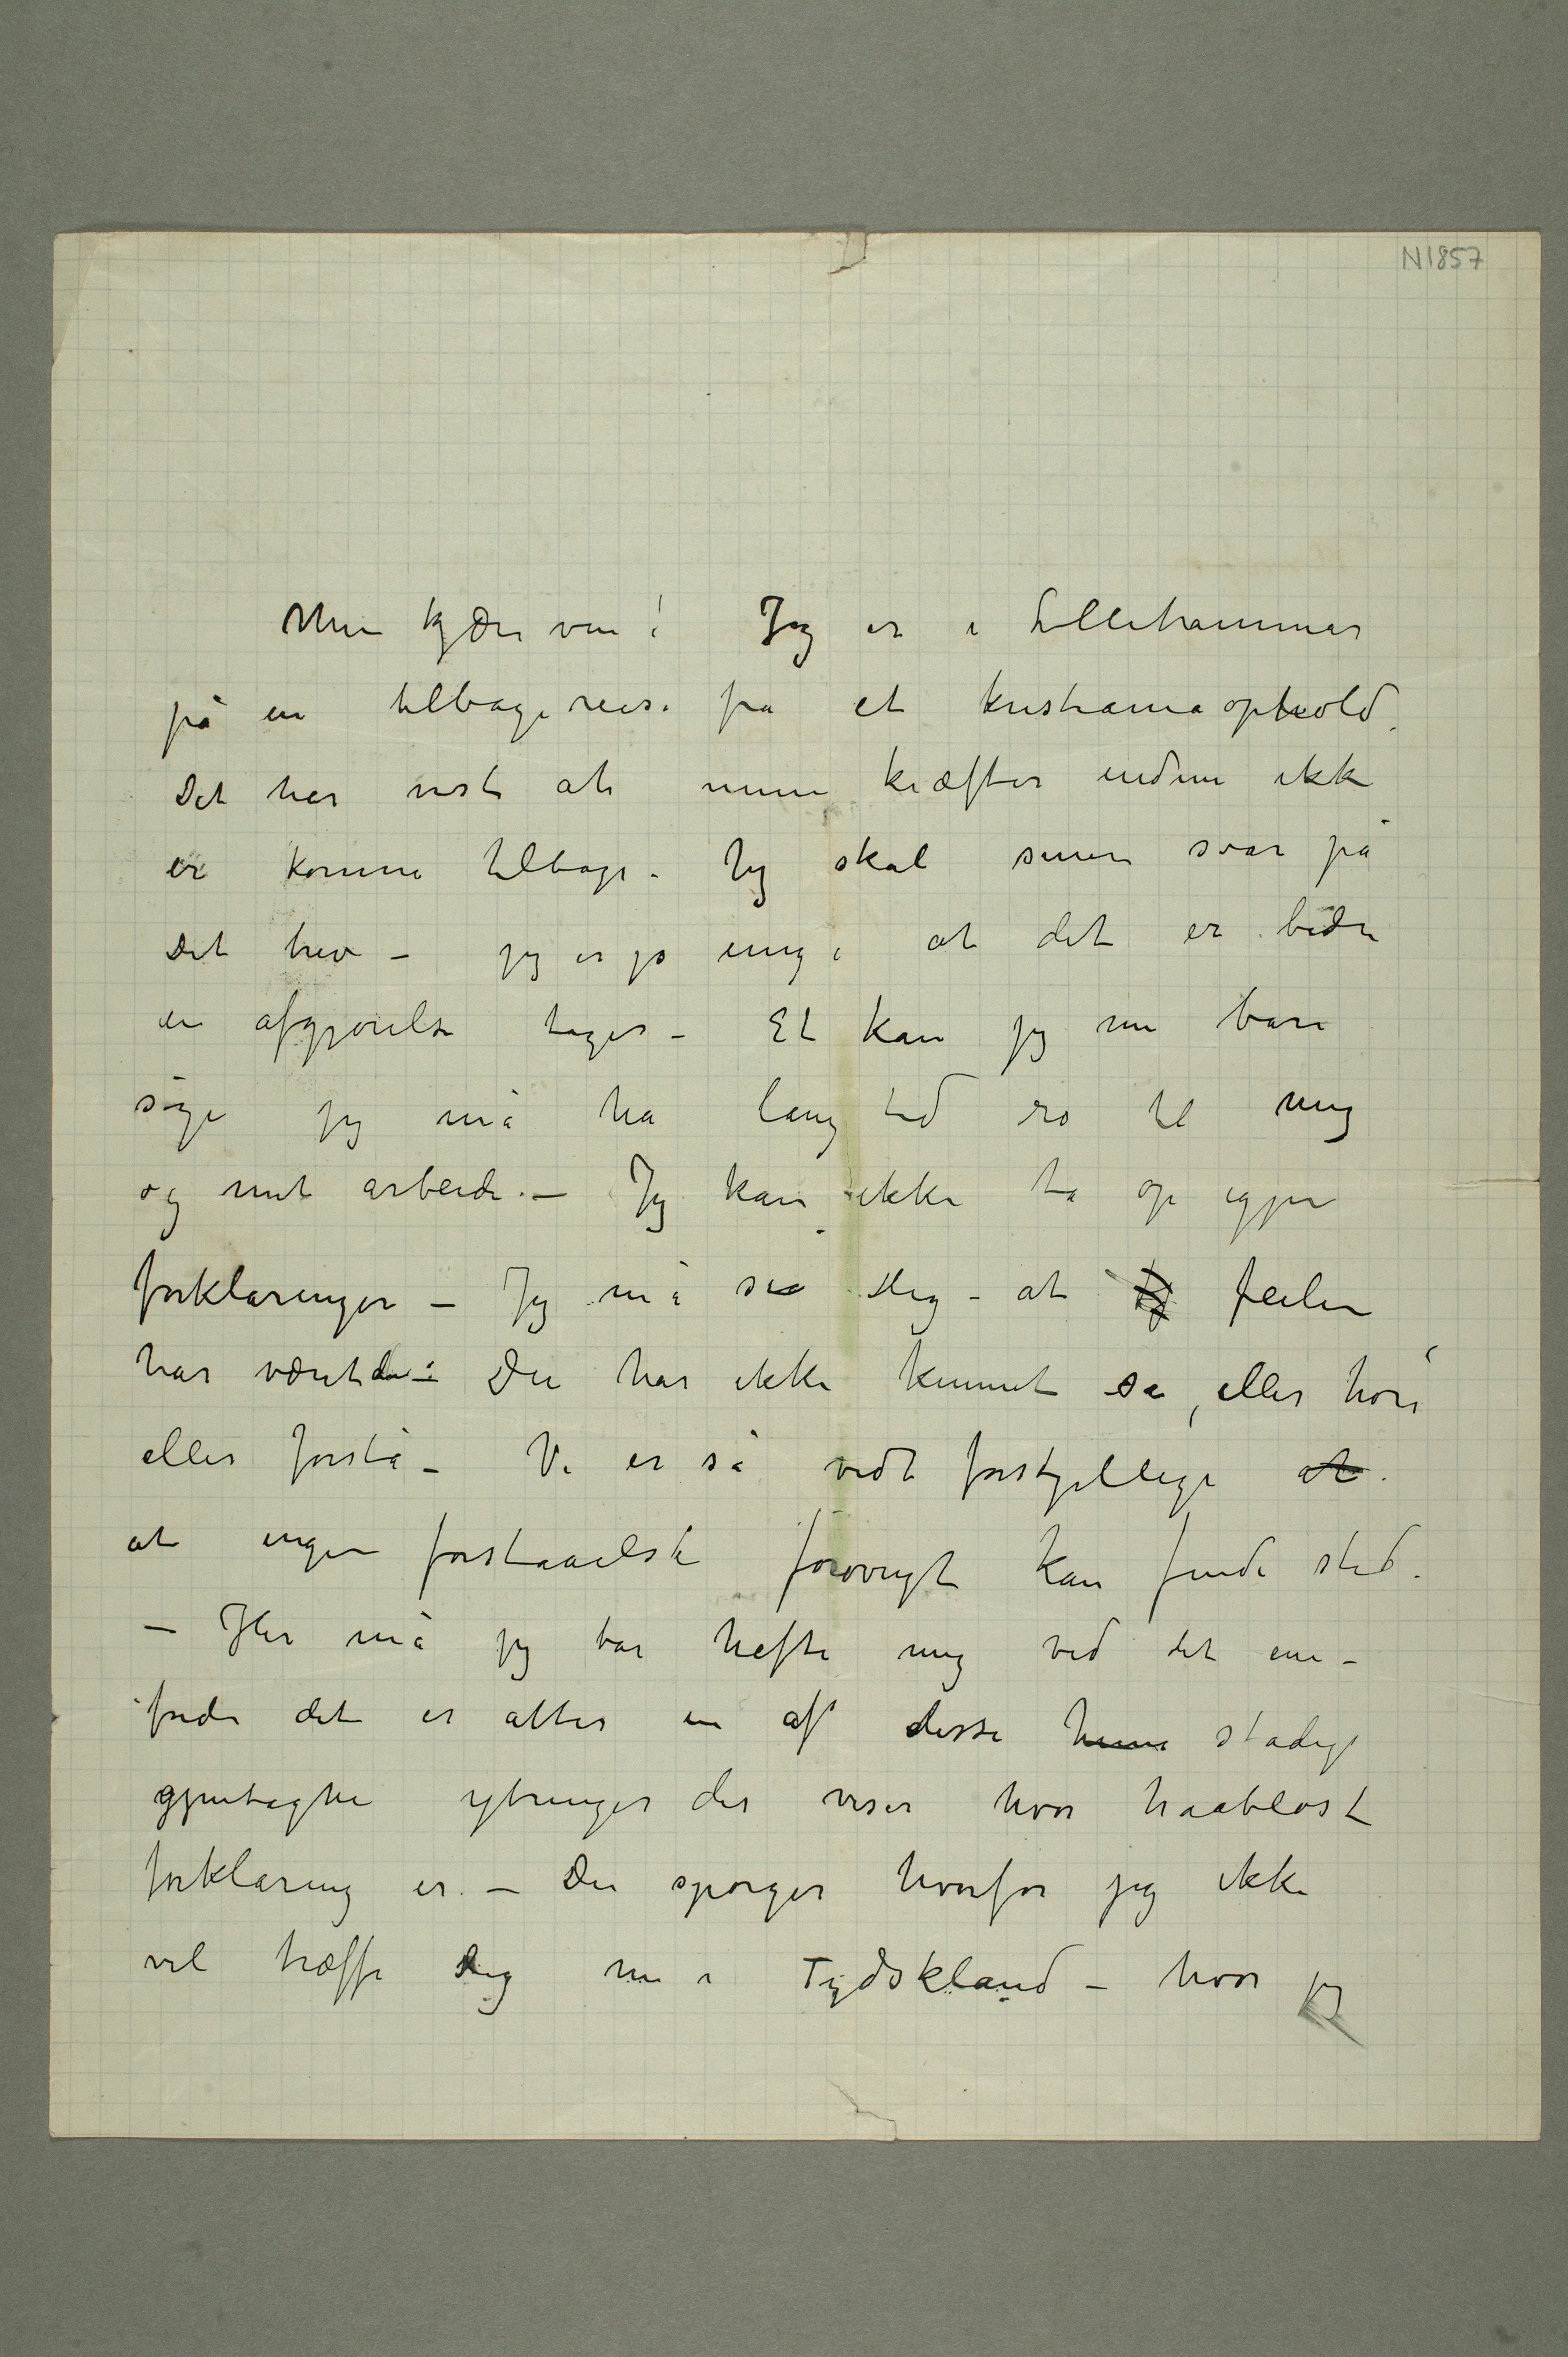 N1857
Min kjære ven! Jeg er i Lillehammer
på en tilbagereise fra et kristianiaophold.
Det har vist at mine kræfter endnu ikke
er komne tilbage. Jeg skal senere svar på
Dit brev – jeg er jo enig i at det er bedre
en afgjørelse tages – Et kan jeg nu bare
sige jeg må ha lang tid ro til mig
og mit arbeide. – Jeg kan ikke ta op igjen
forklaringer – Jeg må si Dig – at feilen
har været den: Du har ikke kunnet se, eller høre
eller forstå – Vi er så vidt forskjellige at
at ingen forstaaelse forøvrigt kan finde sted.
– Her må jeg bare hefte mig ved det ene –
fordi det er atter en af disse stadige
gjentagne ytringer der viser hvor haabløst
forklaring er. – Du spørger hvorfor jeg ikke
vil træffe Dig nu i Tydskland – hvor jeg